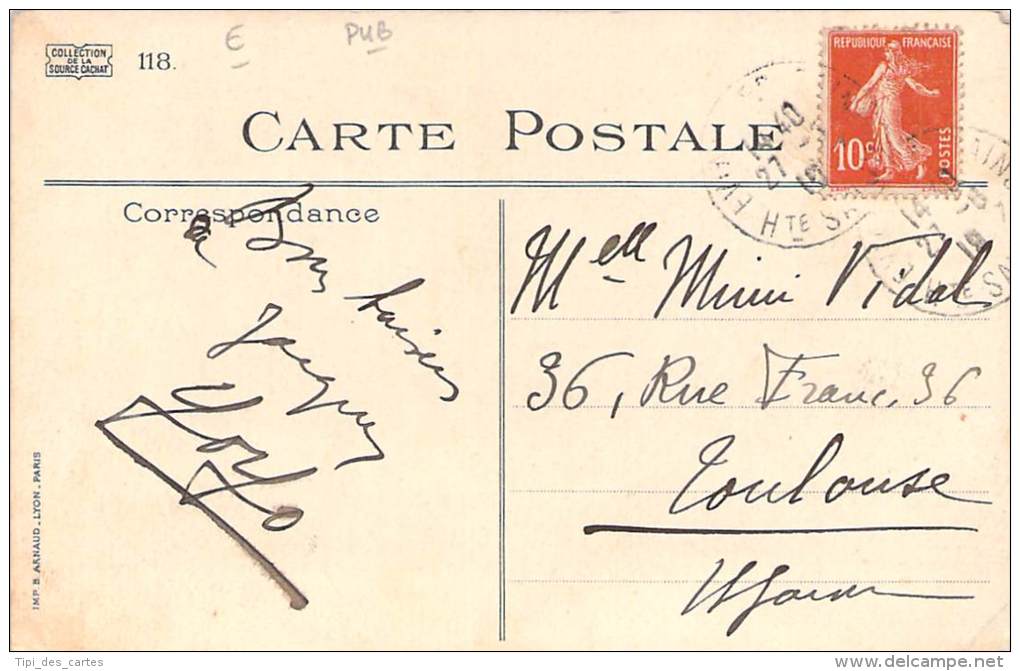 COLLECTION
DE LA
SOURCE CACHAT
118.
E
PUB
CARTE POSTALE
REPUBLIQUE FRANÇAISE
10c
POSTES
27
Hte SA
14
27
Correspondance
Bons baisers
Jacques
Melle Mimi Vidal
36, Rue Franc, 36
Toulouse
Hte Garonne
IMP. B. ARNAUD _ LYON _ PARIS
Tipi_des_cartes
www.delcampe.net